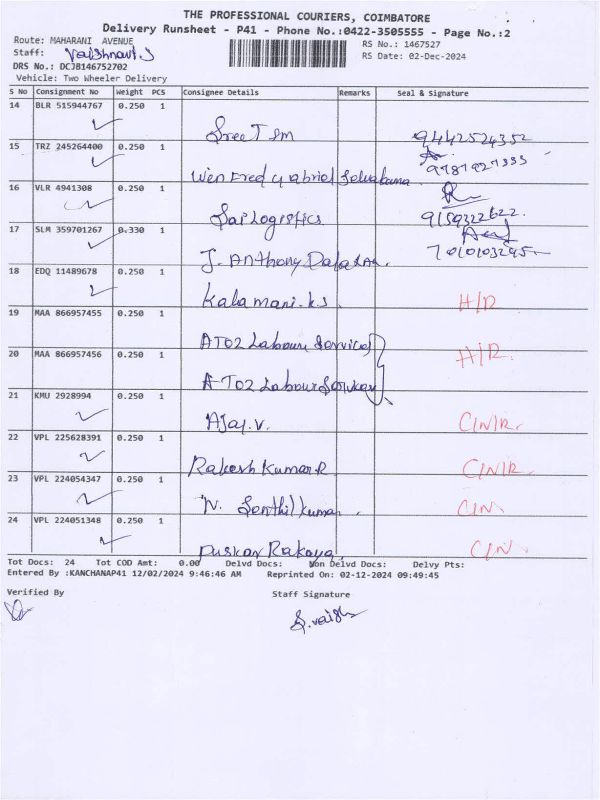 THE PROFESSIONAL COURIERS, COIMBATORE
Delivery Runsheet - P41 - Phone No.:0422-3505555 - Page No.:2
Route: MAHARANI AVENUE
RS No.: 1467527
Staff: Vaishnavi.S
RS Date: 02-Dec-2024
DRS No.: DCJ8146752702
Vehicle: Two Wheeler Delivery
S No Consignment No Weight PCS Consignee Details Remarks Seal & Signature
14 BLR 515944767 0.250 1
Sree T sm 9442524352
15 TRZ 245264400 0.250 1
Wen Fred Gabriel 9787927333
16 VLR 4941308 0.250 1
Sai Logistics 9159322622
17 SLM 359701267 0.330 1
J. Anthony 7010103245
18 EDQ 11489678 0.250 1
Kalamani.k.s H/R
19 MAA 866957455 0.250 1
ATOZ Labour Services
20 MAA 866957456 0.250 1 H/R
A TOZ Labour
21 KMU 2928994 0.250 1
Ajay.V. C/N/R
22 VPL 225628391 0.250 1
Rakesh Kumar.R C/N/R
23 VPL 224054347 0.250 1
N. Senthil kumar C/N
24 VPL 224051348 0.250 1
C/N
Tot Docs: 24 Tot COD Amt: 0.00 Delvd Docs: Non Delvd Docs: Delvy Pts:
Entered By :KANCHANAP41 12/02/2024 9:46:46 AM Reprinted On: 02-12-2024 09:49:45
Verified By Staff Signature
S.vaish